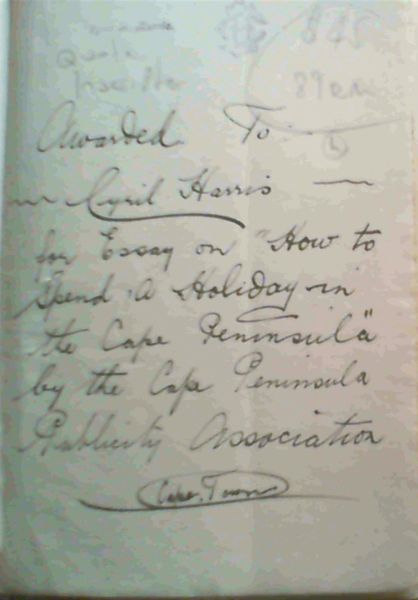 $45
Awarded To
Cyril Harris
for Essay on "How to
Spend a Holiday in
the Cape Peninsula"
by the Cape Peninsula
Publicity Association
Cape Town